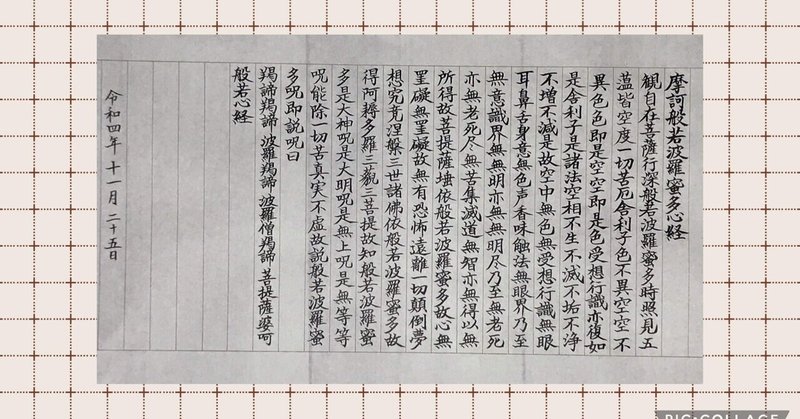 摩訶般若波羅蜜多心経
観自在菩薩行深般若波羅蜜多時照見五
蘊皆空度一切苦厄舎利子色不異空空不
異色色即是空空即是色受想行識亦復如
是舎利子是諸法空相不生不滅不垢不浄
不増不減是故空中無色無受想行識無眼
耳鼻舌身意無色声香味触法無眼界乃至
無意識界無無明亦無無明尽乃至無老死
亦無老死尽無苦集滅道無智亦無得以無
所得故菩提薩埵依般若波羅蜜多故心無
罣礙無罣礙故無有恐怖遠離一切顛倒夢
想究竟涅槃三世諸佛依般若波羅蜜多故
得阿耨多羅三藐三菩提故知般若波羅蜜
多是大神呪是大明呪是無上呪是無等等
呪能除一切苦真実不虚故説般若波羅蜜
多呪即説呪曰
羯諦羯諦 波羅羯諦 波羅僧羯諦 菩提薩婆呵
般若心経
令和四年 十一月 二十五日
PIC•COLLAGE